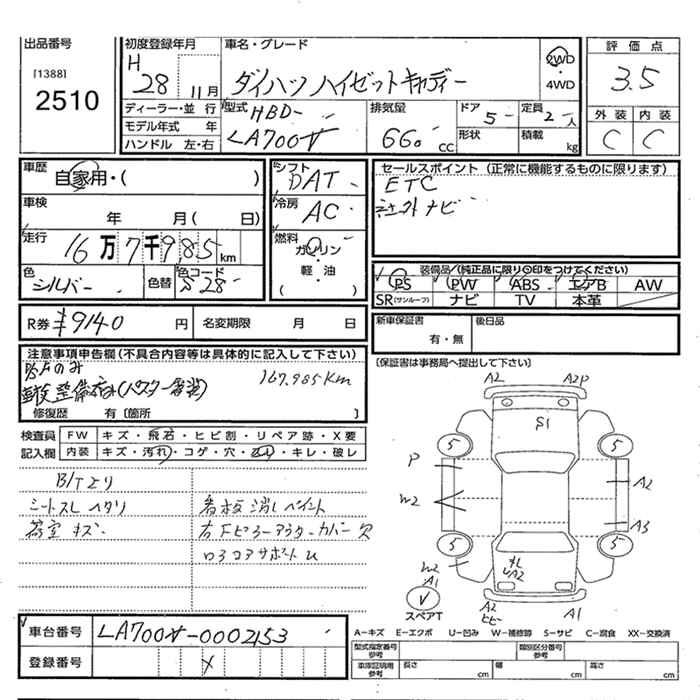 出品番号
[1388]
2510
初度登録年月
H 28 11月
車名・グレード
ダイハツ ハイゼットキャディー
2WD
・
4WD
評価点
3.5
外装 内装
C C
ディーラー・並行
モデル年式 年
ハンドル 左・右
型式 HBD-
LA700V
排気量
660 cc
ドア 5
形状
定員 2人
積載 kg
車歴
自家用・( )
車検
年 月( 日)
走行
16万7千985 km
色
シルバー
色替
色コード
S28
シフト
DAT
冷房
AC
燃料
ガソリン
・
軽・油
( )
セールスポイント (正常に機能するものに限ります)
ETC
社外ナビ
装備品/(純正品に限り○印をつけてください)
PS PW ABS エアB AW
SR(サンルーフ) ナビ TV 本革
R券 ¥9140 円
名変期限 月 日
新車保証書
有・無
後日品
[保証書は事務局へ提出して下さい]
注意事項申告欄(不具合内容等は具体的に記入して下さい)
167,985Km
修復歴 有[箇所 ]
検査員 FW キズ・飛石・ヒビ割・リペア跡・X要
記入欄 内装 キズ・汚れ・コゲ・穴・キレ・破レ
B/Tより
シートスレ ヘタリ
荷室 キズ
看板消しペイント
右Fピラーアウターカバー欠
ロアコアサポートU
A2 A2P
S1
5 5
P
W2
A2
A3
5 5
W2
A1
スペアT
A2
ヒビ
A1
A−キズ E−エクボ U−凹み W−補修跡 S−サビ C−腐食 XX−交換済
車台番号 LA700V-0002153
登録番号
型式指定番号
参考
類別区分番号
参考
車庫証明用
参考
長さ cm 幅 cm 高さ cm